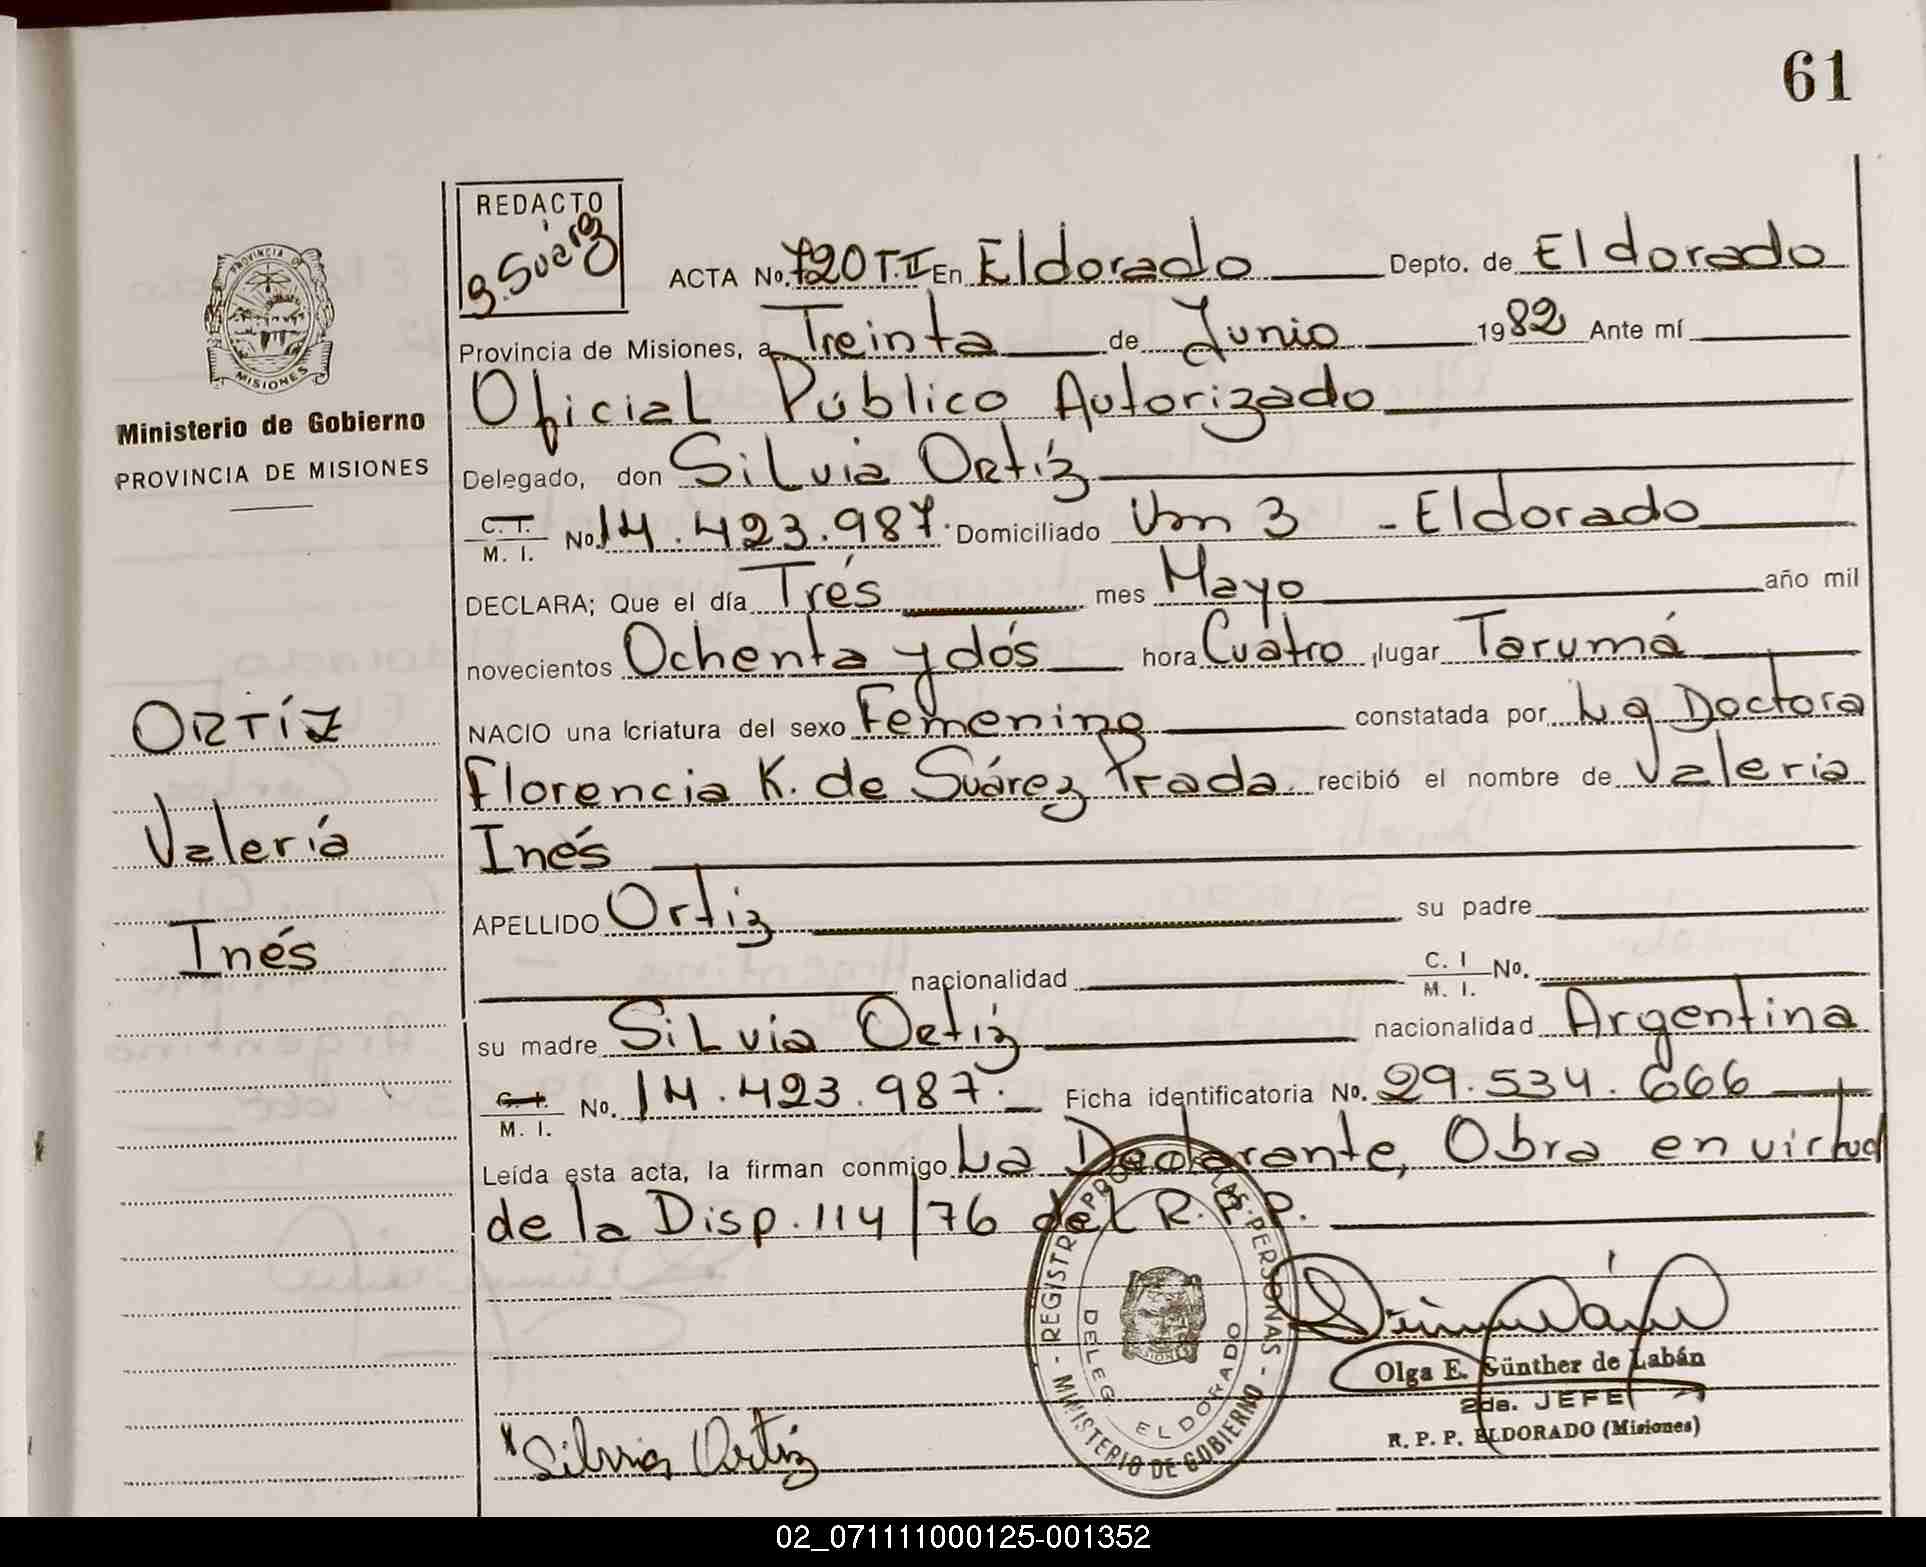 61
REDACTO
g. Suárez
ACTA No. 720 T. II En Eldorado Depto. de Eldorado
Provincia de Misiones, a Treinta de Junio 1982 Ante mí
Oficial Público Autorizado
Delegado, don Silvia Ortíz
C. I.
M. I. No. 14.423.987. Domiciliado Km 3 - Eldorado
DECLARA; Que el día Trés mes Mayo año mil
novecientos Ochenta y dós hora Cuatro lugar Tarumá
NACIO una criatura del sexo Femenino constatada por La Doctora
Florencia K. de Suárez Prada. recibió el nombre de Valeria
Inés
APELLIDO Ortiz su padre
nacionalidad C. I
M. I. No.
su madre Silvia Ortíz nacionalidad Argentina
C. I.
M. I. No. 14.423.987. Ficha identificatoria No. 29.534.666
Leída esta acta, la firman conmigo La Declarante, Obra en virtud
de la Disp. 114/76 del R.P.P.
PROVINCIA DE
MISIONES
Ministerio de Gobierno
PROVINCIA DE MISIONES
ORTÍZ
Valería
Inés
REGISTRO PROV. DE LAS PERSONAS
MINISTERIO DE GOBIERNO
DELEG. ELDORADO
Silvia Ortiz
Olga E. Günther de Labán
2da. JEFE
R. P. P. ELDORADO (Misiones)
02_071111000125-001352